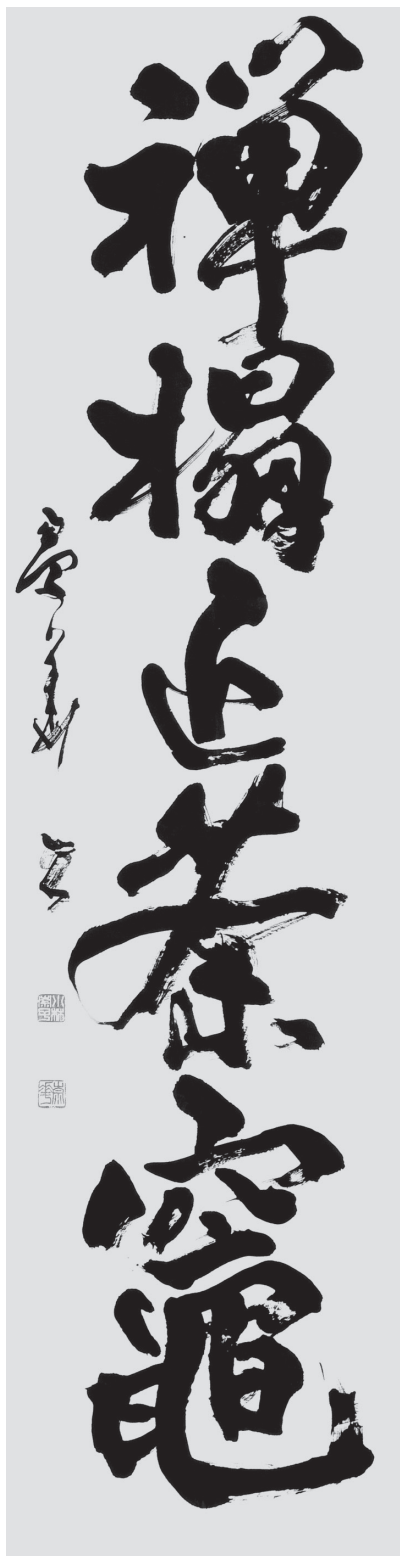 禅榻近茶竈